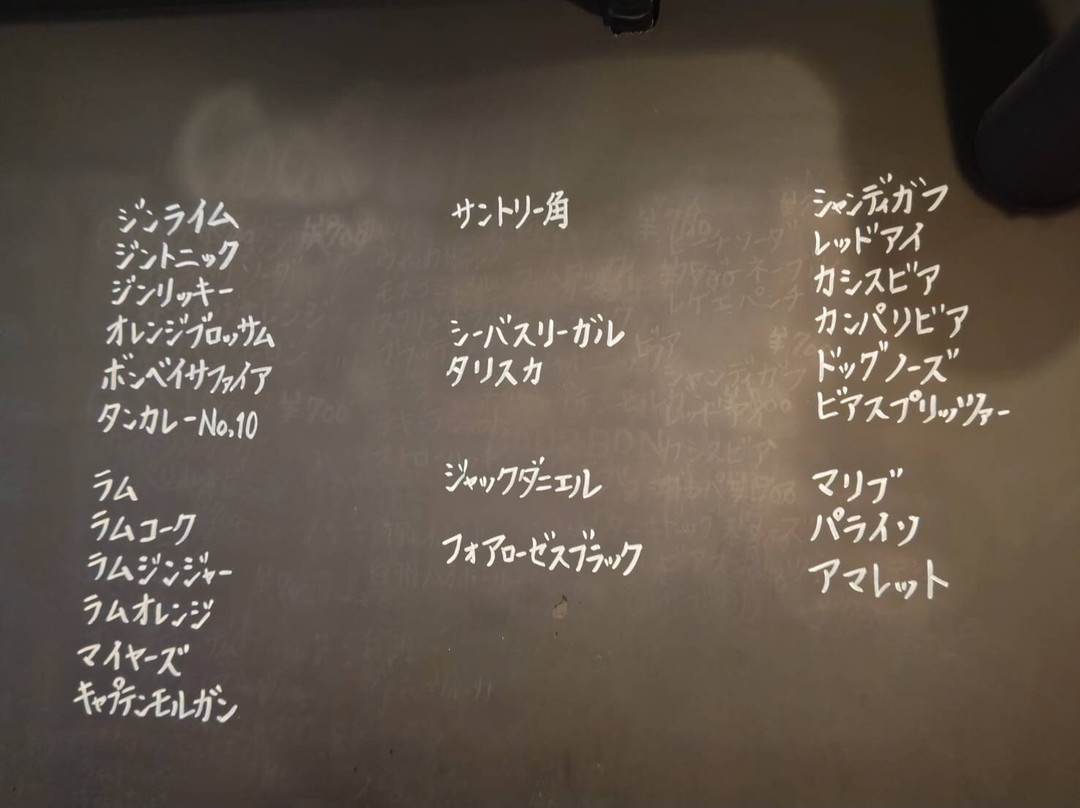 ジンライム
ジントニック
ジンリッキー
オレンジブロッサム
ボンベイサファイア
タンカレーNo,10
ラム
ラムコーク
ラムジンジャー
ラムオレンジ
マイヤーズ
キャプテンモルガン
サントリー角
シーバスリーガル
タリスカ
ジャックダニエル
フォアローゼスブラック
シャンディガフ
レッドアイ
カシスビア
カンパリビア
ドッグノーズ
ビアスプリッツァー
マリブ
パライソ
アマレット